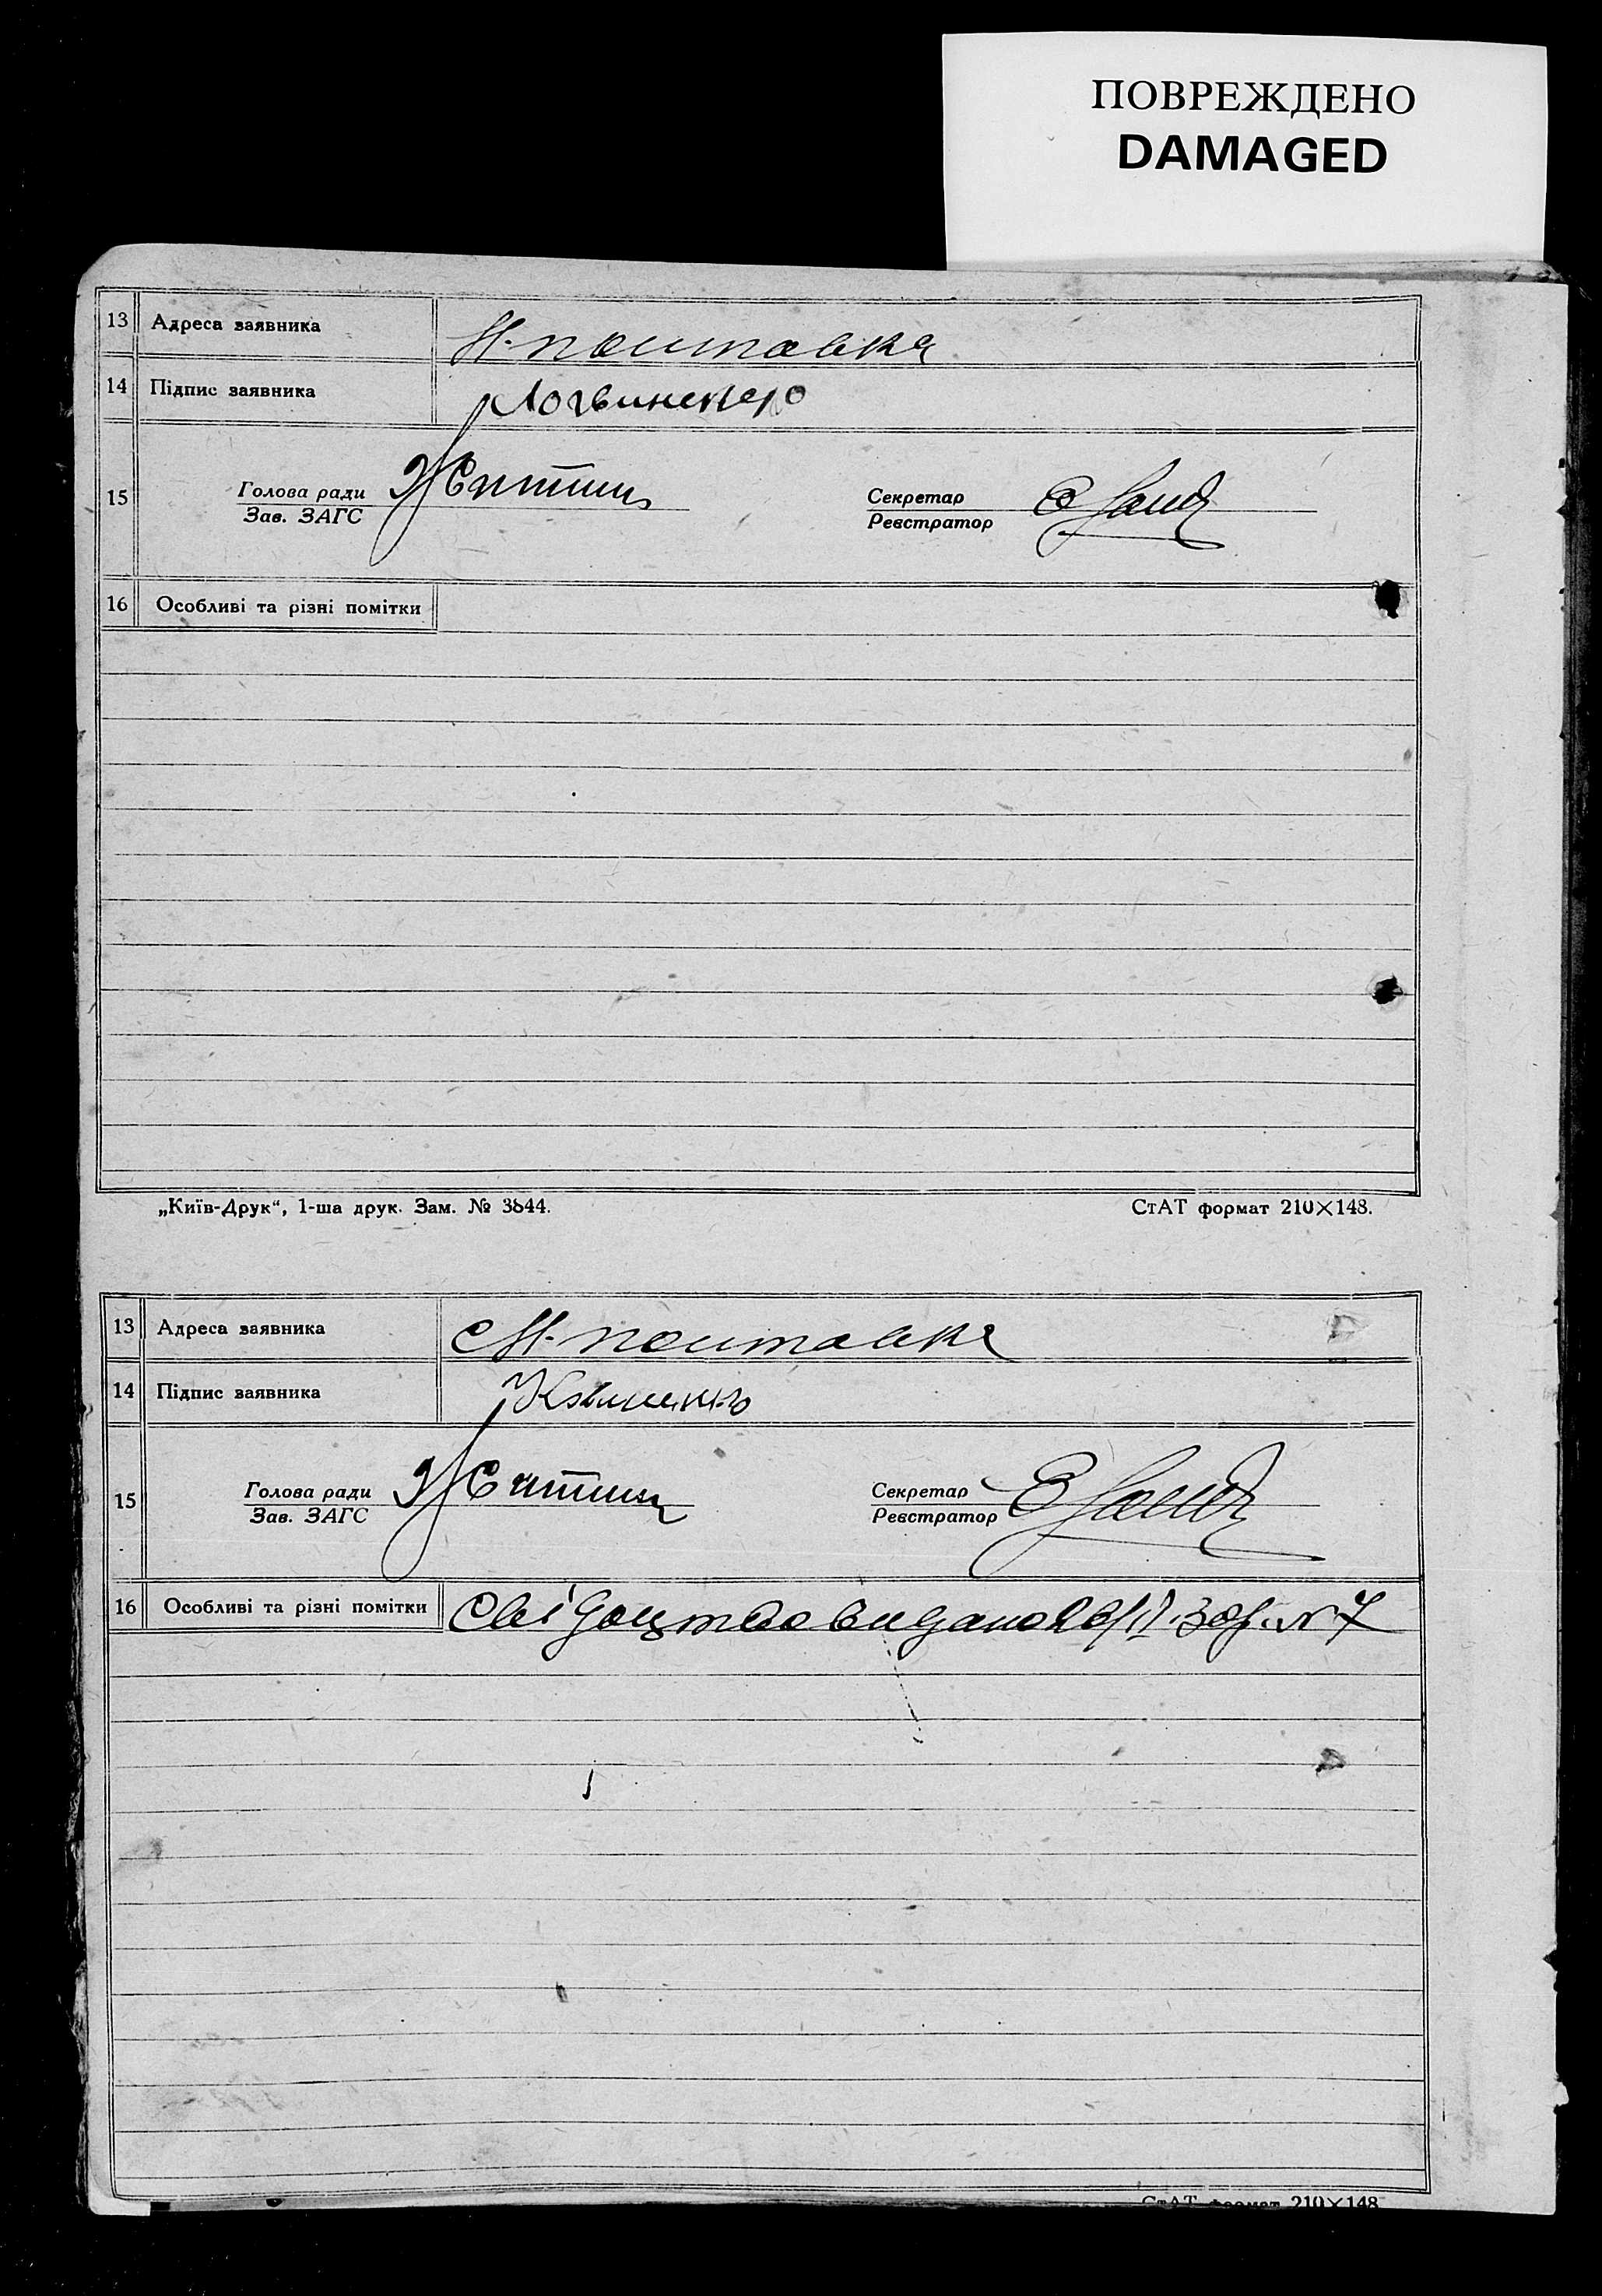 ПОВРЕЖДЕНО
DAMAGED
13 Адреса заявника М-Поштовка
14 Підпис заявника Логвиненко
15 Голова ради
Зав. ЗАГС
Секретар
Реєстратор
16 Особливі та різні помітки
„Київ-Друк“, 1-ша друк. Зам. № 3844.
СтАТ формат 210×148.
13 Адреса заявника М-Поштовка
14 Підпис заявника
15 Голова ради
Зав. ЗАГС
Секретар
Реєстратор
16 Особливі та різні помітки Свідоцтво видано N 7
СтАТ формат 210×148